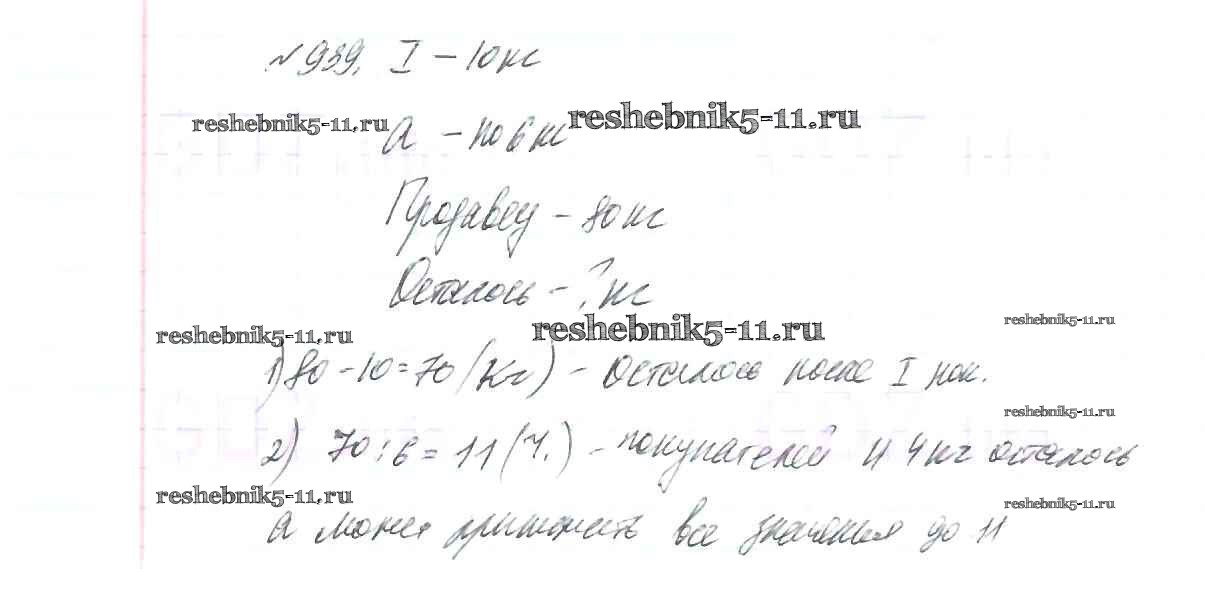 №939. I – 10 кг
reshebnik5-11.ru reshebnik5-11.ru
а – по 6 кг
Продавец – 80 кг
Осталось – ? кг
reshebnik5-11.ru reshebnik5-11.ru reshebnik5-11.ru
1) 80 – 10 = 70 (кг) – осталось после I пок.
reshebnik5-11.ru
2) 70 : 6 = 11 (ч.) – покупателей и 4 кг осталось
reshebnik5-11.ru reshebnik5-11.ru
а может принимать все значения до 11